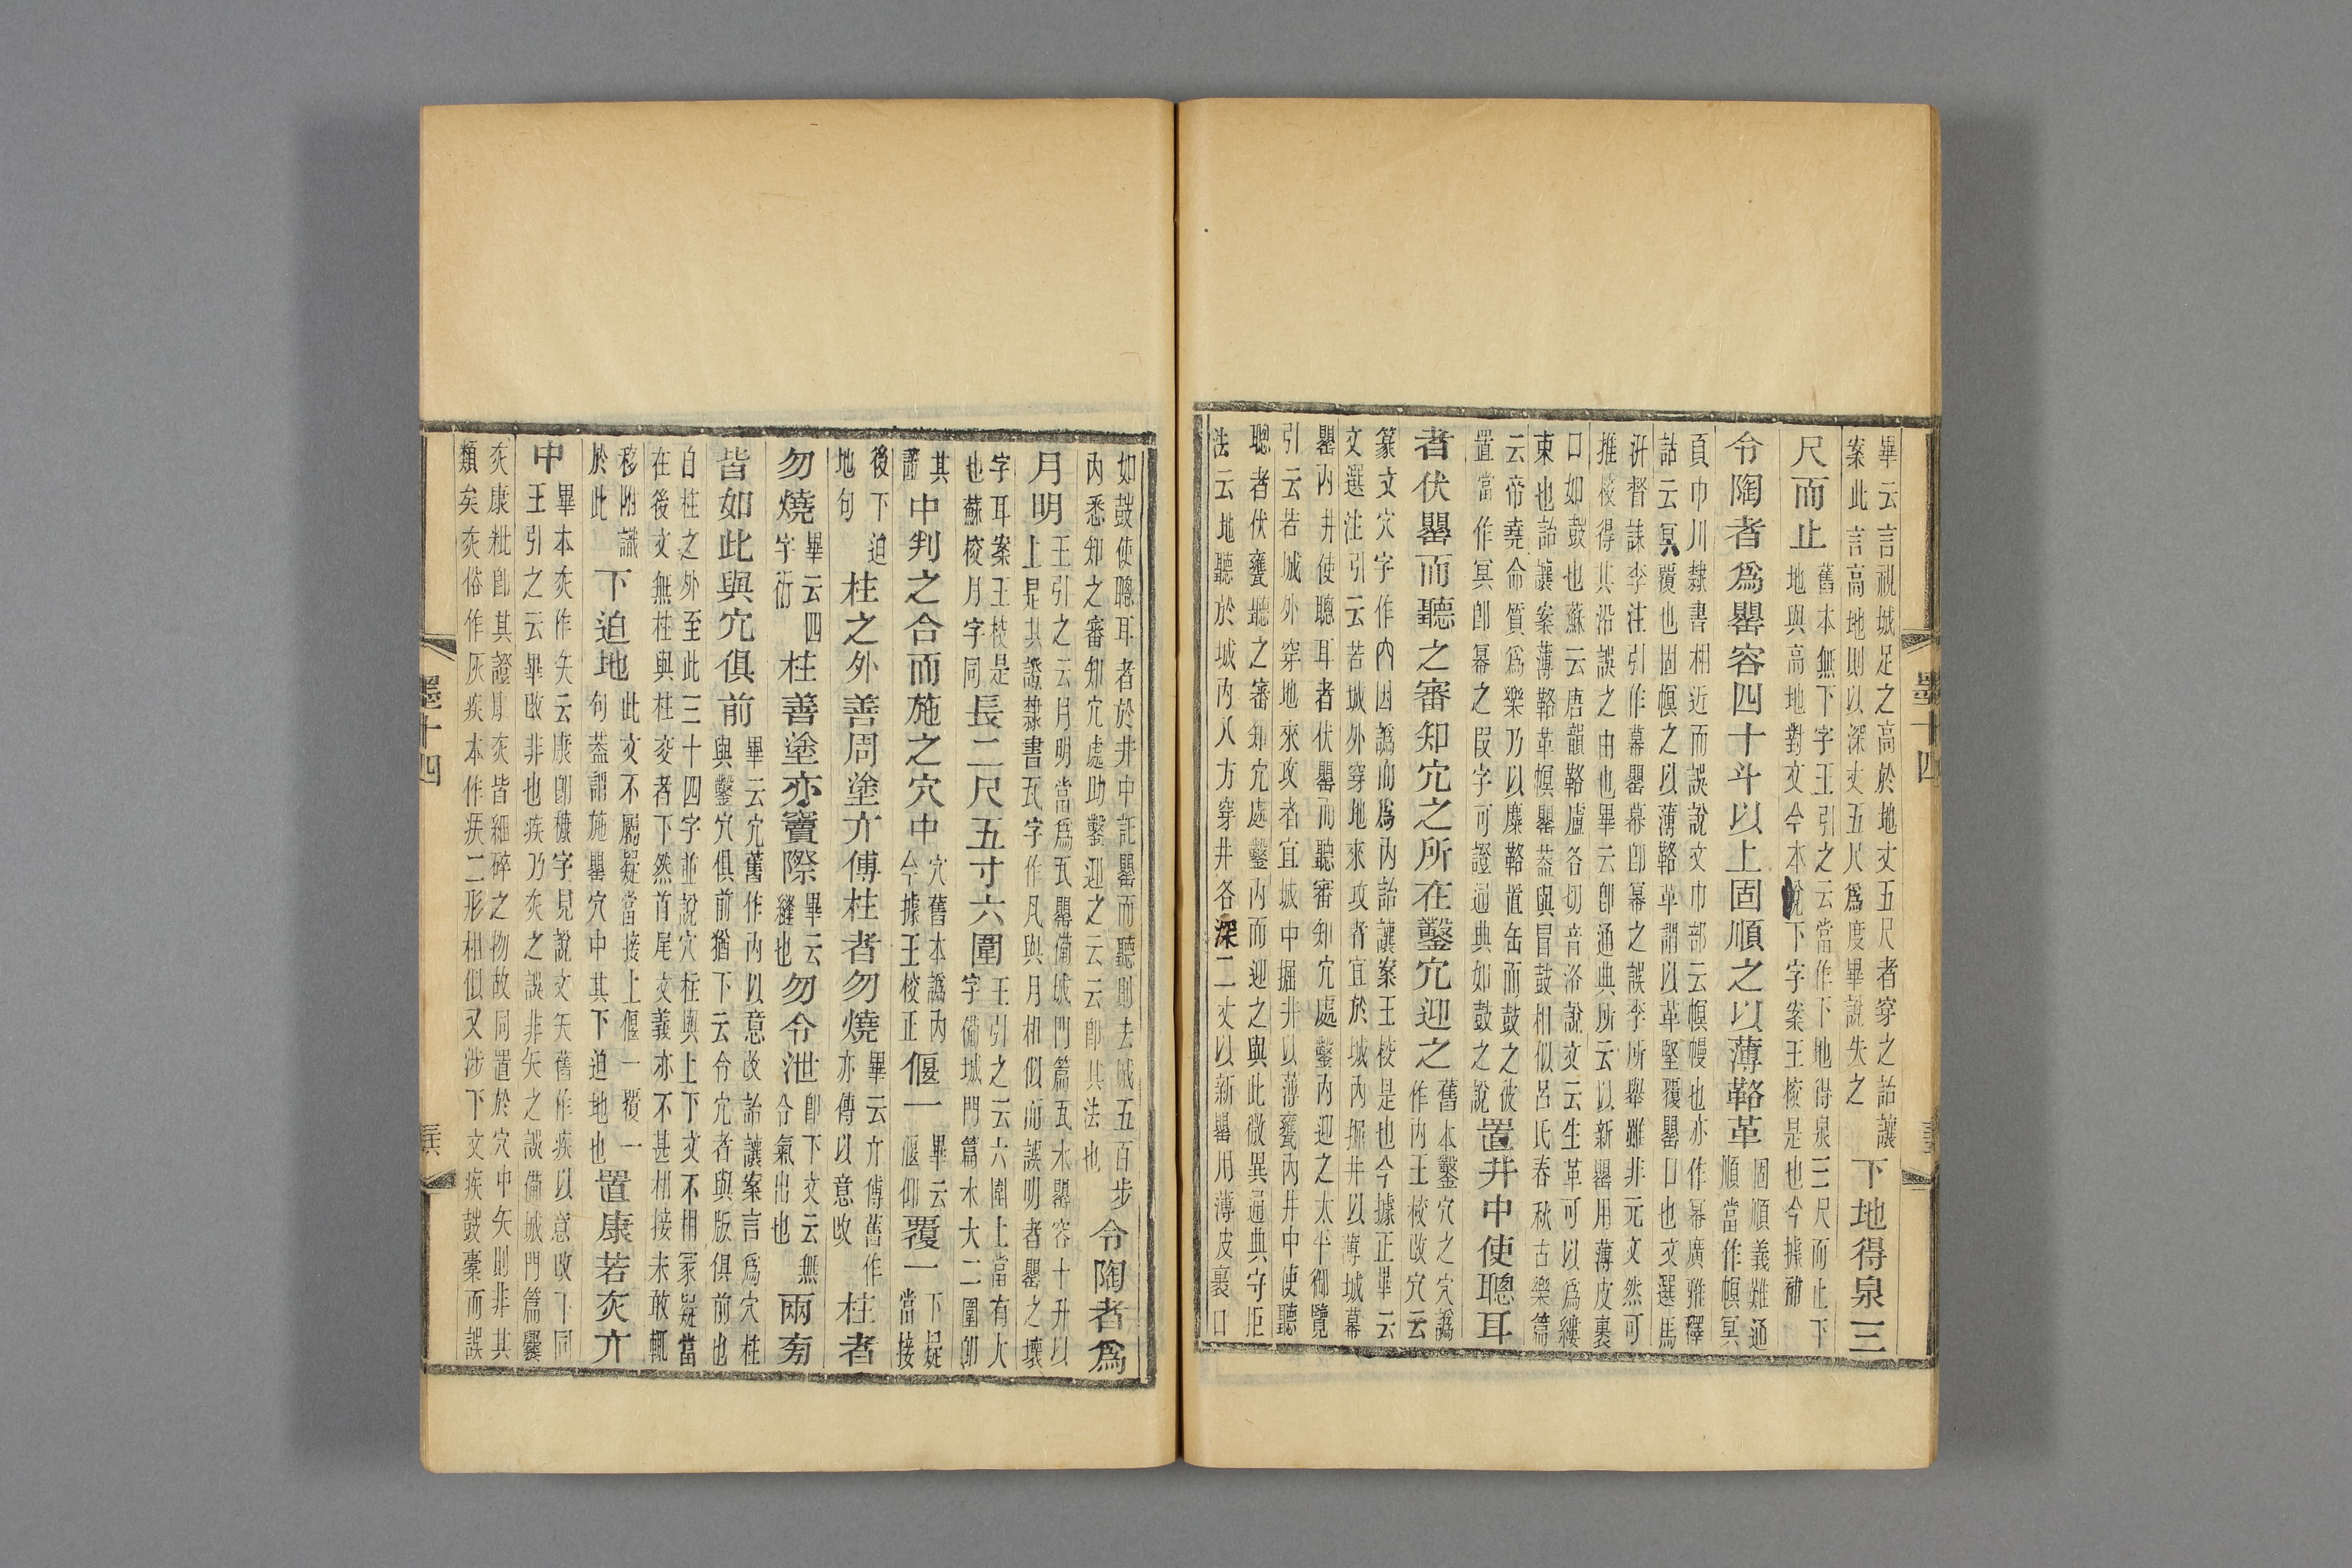 畢云言視城足之高於地丈五尺者穿之詒讓
案此言高地則以深丈五尺爲度畢說失之
下地得泉三
尺而止
舊本無下字王引之云當作下地得泉三尺而止下
地與高地對文今本說下字案王校是也今據補
令陶者爲罌容四十斗以上固順之以薄鞈革
固順義難通
順當作幎冥
頁巾川隸書相近而誤說文巾部云幎幔也亦作幂廣雅釋
詁云冥覆也固幎之以薄鞈革謂以革堅覆罌口也文選馬
汧督誄李注引作幕罌幕卽幂之誤李所舉雖非元文然可
推校得其沿誤之由也畢云卽通典所云以新罌用薄皮裹
口如鼓也蘇云唐韻鞈盧各切音洛說文云生革可以爲縷
束也詒讓案薄鞈革幎罌葢與冒鼓相似呂氏春秋古樂篇
云帝堯命質爲樂乃以麋鞈置缶而鼓之彼
置當作冥卽幂之叚字可證通典如鼓之說
置井中使聰耳
者伏罌而聽之審知穴之所在鑿穴迎之
舊本鑿穴之穴譌
作內王校改穴云
篆文穴字作內因譌而爲內詒讓案王校是也今據正畢云
文選注引云若城外穿地來攻者宜於城內掘井以薄城幕
罌內井使聰耳者伏罌而聽審知穴處鑿內迎之太平御覽
引云若城外穿地來攻者宜城中掘井以薄甕內井中使聽
聰者伏甕聽之審知穴處鑿內而迎之與此微異通典守拒
法云地聽於城內八方穿井各深二丈以新罌用薄皮裹口
如鼓使聰耳者於井中託罌而聽則去城五百步
內悉知之審知穴處助鑿迎之云云卽其法也
令陶者爲
月明
王引之云月明當爲瓦罌備城門篇瓦木罌容十升以
上是其證隸書瓦字作凡與月相似而誤明者罌之壞
字耳案王校是
也蘇校月字同
長二尺五寸六圍
王引之云六圍上當有大
字備城門篇木大二圍卽
其
證
中判之合而施之穴中
穴舊本譌內
今據王校正
偃一
畢云
偃仰
覆一
下疑
當接
後下迫
地句
柱之外善周塗亓傅柱者勿燒
畢云亓傅舊作
亦傳以意改
柱者
勿燒
畢云四
字衍
柱善塗亦竇際
畢云
縫也
勿令泄
卽下文云無
令氣出也
兩旁
皆如此與穴俱前
畢云穴舊作內以意改詒讓案言爲穴柱
與鑿穴俱前猶下云令穴者與版俱前也
自柱之外至此三十四字並說穴柱與上下文不相冡疑當
在後文無柱與柱交者下然首尾文義亦不甚相接未敢輒
移附識
於此
下迫地
此文不屬疑當接上偃一覆一
句葢謂施罌穴中其下迫地也
置康若灰亓
中
畢本灰作矢云康卽穅字見說文矢舊作疾以意改下同
王引之云畢改非也疾乃灰之誤非矢之誤備城門篇爨
灰康粃卽其證康灰皆細碎之物故同置於穴中矢則非其
類矣灰俗作灰疾本作疾二形相似又涉下文疾鼓橐而誤
墨十四
墨十四